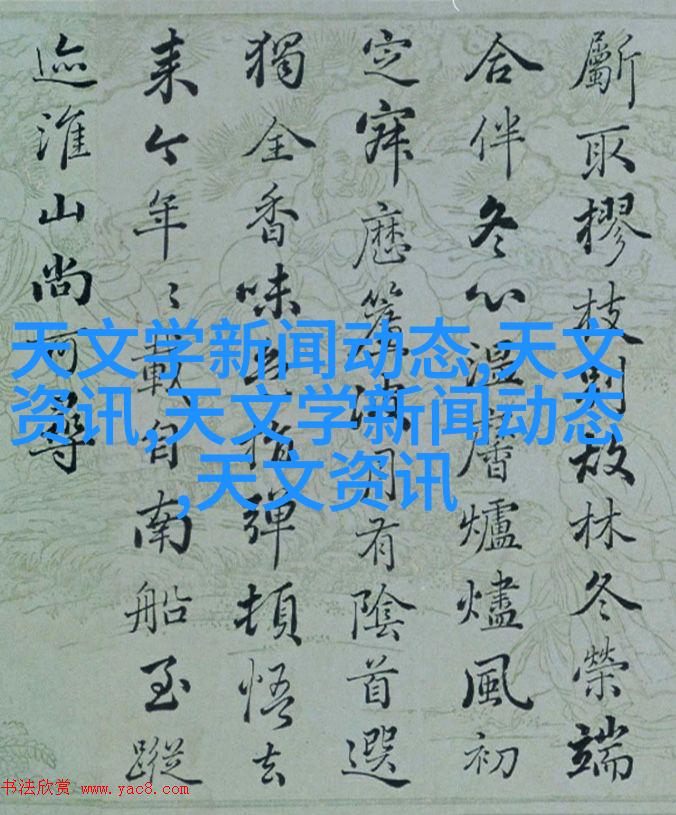 斸取樛枝别故林冬榮端
合伴冬心温黁爐燼風初
定寂歷月有陰首選
獨全香味指彈頓悟去
来今年〻載自南船至蹤
迹淮山尚可尋
天文学新闻动态,天文
资讯,天文学新闻动态
,天文资讯
书法欣赏 www.yac8.com